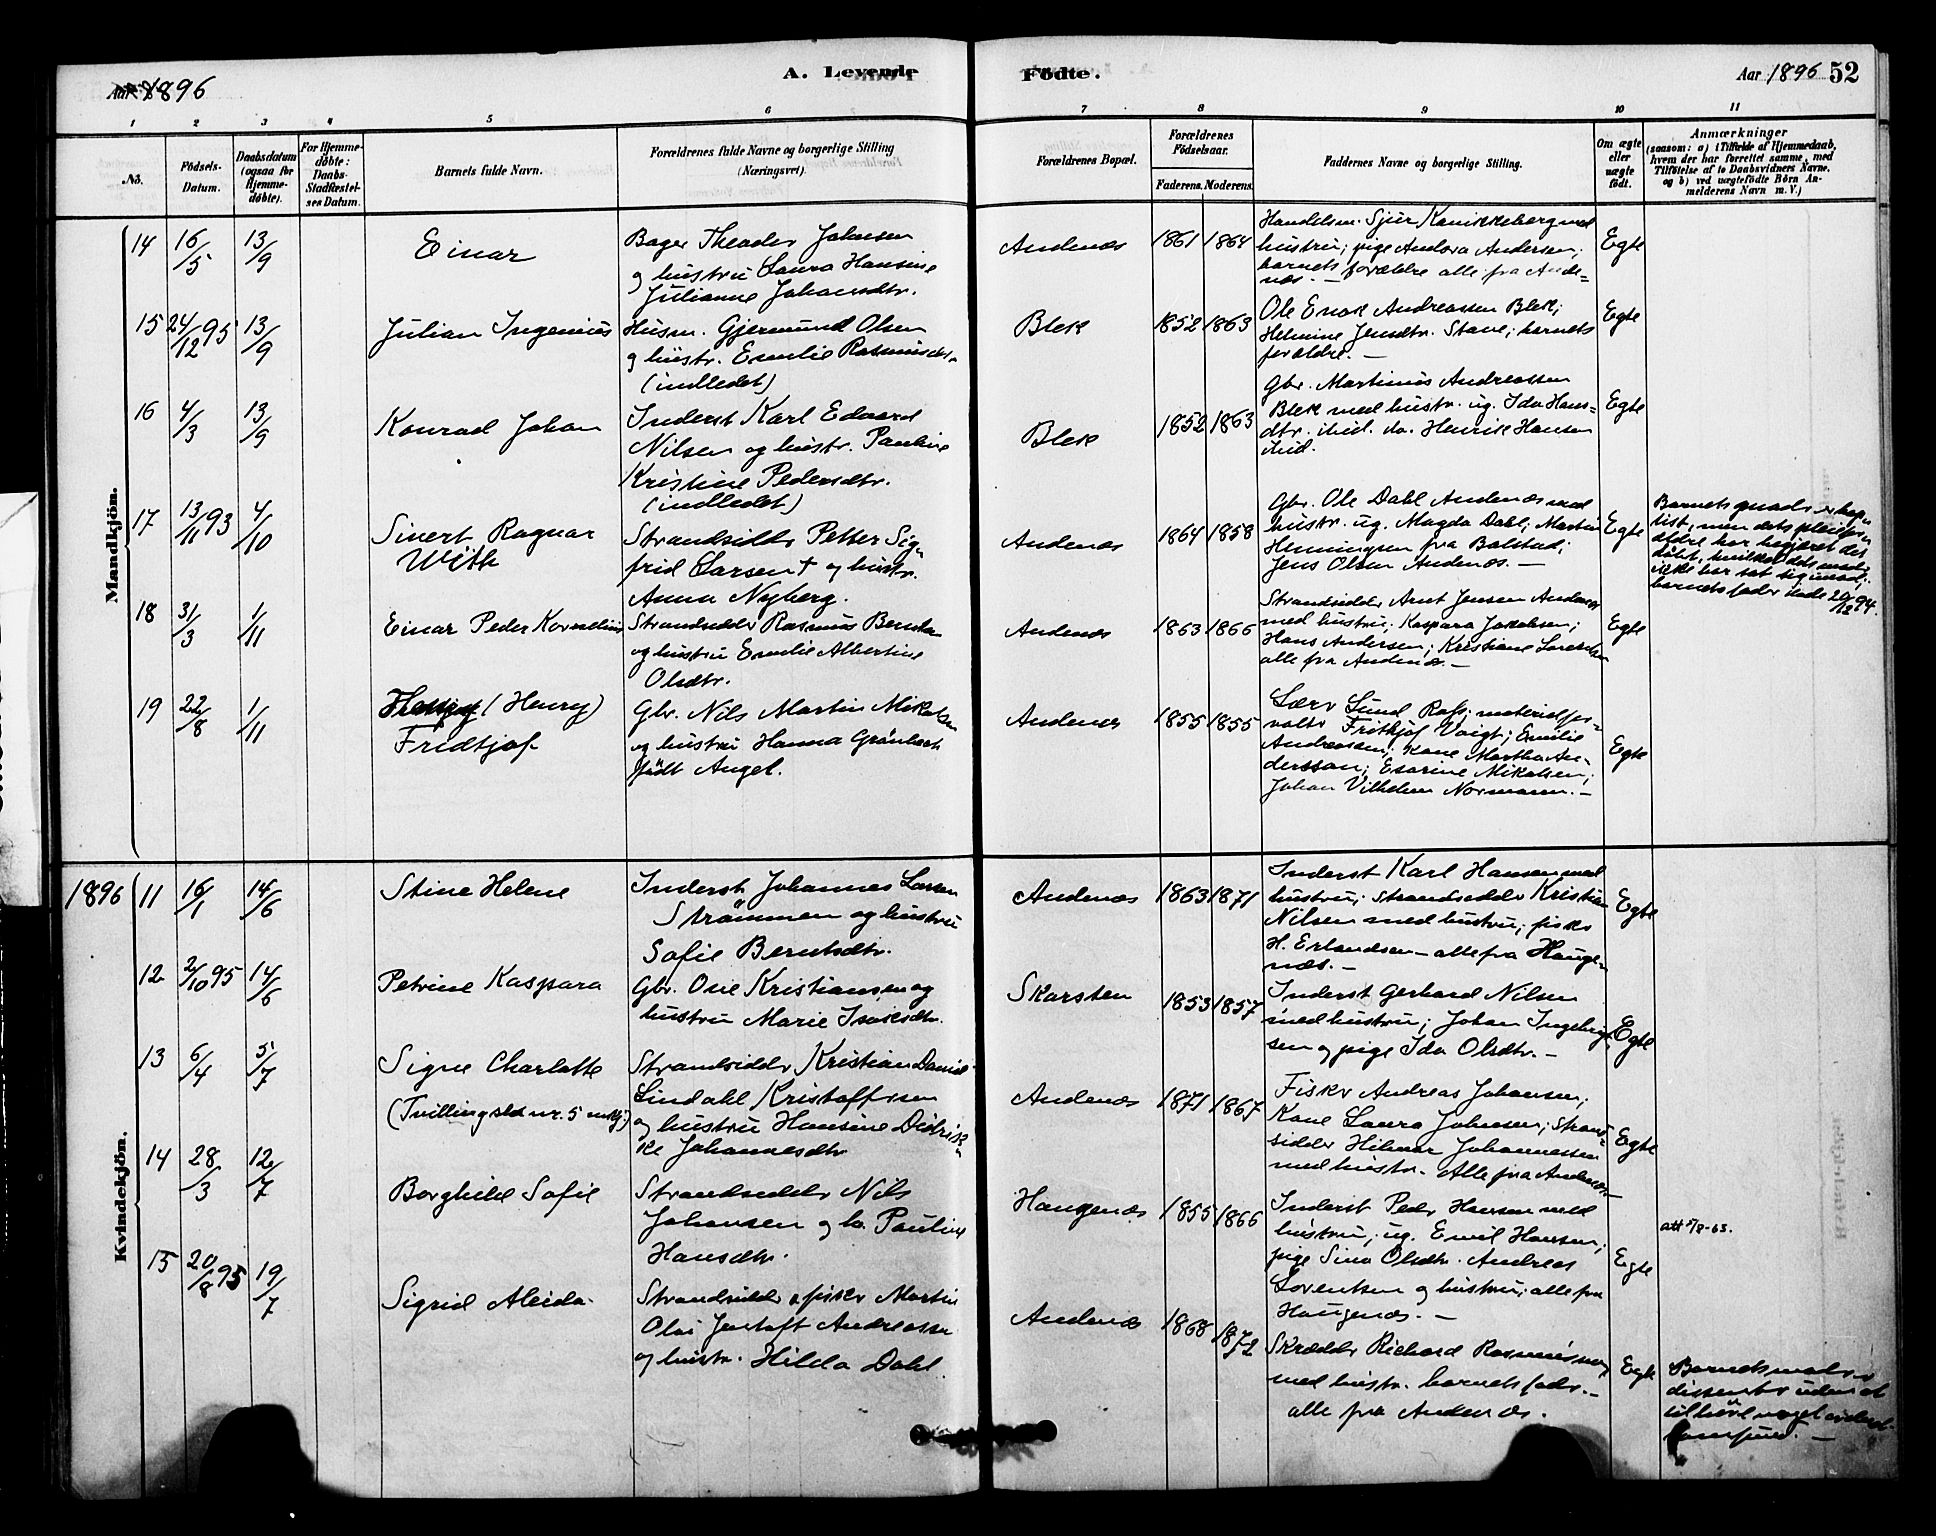 Aar 1896
A. Levende
Födte.
Aar 1896 52
1 2 3 4 5 6 7 8 9 10 11
No.
Födsels-
Datum.
Daabsdatum
(ogsaa for
Hjemme-
döbte).
For Hjemme-
döbte:
Daabs-
Stadfæstel-
ses Datum.
Barnets fulde Navn.
Forældrenes fulde Navne og borgerlige Stilling
(Næringsvei).
Forældrenes Bopæl.
Forældrenes
Födselsaar.
Faderens. Moderens.
Faddernes Navne og borgerlige Stilling.
Om ægte
eller
uægte
födt.
Anmærkninger
(saasom: a) i Tilfælde af Hjemmedaab,
hvem der har forrettet samme, med
Tilföielse af to Daabsvidners Navne,
og b) ved uægtefödte Börn An-
melderens Navn m. V.)
Mandkjön.
14 16/5 13/9 Einar
Bager Theador Johnsen
og hustru Laura Hansine
Julianne Johansdtr.
Andenæs 1861 1864
Handelsm. Sjur Kanikkeberg med
hustru; pige Andora Andersen;
barnets forældre alle fra Ande-
næs. —
Egte
15 24/12 95 13/9 Julian Ingenius
Husm. Gjermund Olsen
og hustr. Emelie Rasmusdtr.
(indledet)
Blek 1852 1863
Ole Enok Andreassen Blek;
Helmine Jensdtr. Stave; barnets
forældre. —
Egte
16 4/3 13/9 Konrad Johan
Inderst Karl Edvard
Nilsen og hustr. Pauline
Kristine Pedersdtr.
(indledet)
Blek 1852 1863
Gbr. Martinus Andreassen
Blek med hustr. ug. Ida Hans-
dtr. ibid. do. Henrik Hansen
ibid.
Egte
17 13/11 93 4/10 Sivert Ragnar
With
Strandsidder Petter Sig-
frid Larsen † og hustr.
Anna Nyberg.
Andenæs 1864 1858
Gbr. Ole Dahl Andenæs med
hustr. ug. Magda Dahl; Martin
Henningsen fra Balstad;
Jens Olsen Andenæs. —
Egte
tist, men dets pleiefor-
ældre har begjæret det
döbt, hvilket dets moder
ikke har sat sig imod;
barnets fader döde 20/12 94.
18 31/3 1/11 Einar Peder Kornelius
Strandsidder Rasmus
og hustru Emelie Albertine
Olsdtr.
Andenæs 1863 1866
Strandsidder Arnt Jensen Andenæs
med hustru; Kaspara Jakobsen;
Hans Andersen; Kristiane
alle fra Andenæs. —
Egte
19 22/8 1/11 (Henry)
Fridtjof
Gbr. Nils Martin Mikalsen
og hustru Hanna Grönbeck
födt Angel.
Andenæs 1855 1855
Lærer Lund materialfor-
valter Frithjof Voigt; Emilie
Andreassen; kone Martha An-
derssen; Esarine Mikalsen;
Johan Vilhelm Normann. —
Egte
Kvindekjön.
1896 11 16/1 14/6 Stine Helene
Inderst Johannes Larsen
Strömmen og hustru
Sofie Berntsdtr.
Andenæs 1863 1871
Inderst Karl Hansen med
hustru; Strandsidder Kristian
Nilsen med hustru; fisker
H. Erlandsen — alle fra Hauge-
næs. —
Egte
12 2/10 95 14/6 Petrine Kaspara
Gbr. Ove Kristiansen og
hustru Marie Isaksdtr.
Skarsten 1853 1857
Inderst Gerhard Nilsen
med hustru; Johan Ingebrigt-
sen og pige Ida Olsdtr. —
Egte
13 6/4 5/7 Signe Charlotte
(Tvilling sld nr. 5 mkj)
Strandsidder Kristian Daniel
Lindahl Kristoffersen
og hustru Hansine Didrik-
ke Johannesdtr
Andenæs 1871 1867
Fisker Andreas Johansen;
Kone Laura Johnsen; Strand-
sidder Hilmar Johannessen
med hustr. Alle fra Andenæs —
Egte
14 28/3 12/7 Borghild Sofie
Strandsidder Nils
Johansen og h. Pauline
Hansdtr.
Haugenæs 1855 1866
Inderst Peder Hansen med
hustru; ug. Emil Hansen;
pige Sina Olsdtr. Andreas
Lorentsen og hustru; alle fra
Haugenæs. —
Egte
att 5/8-63.
15 20/8 95 19/7 Sigrid Aleida
Strandsidder & fisker Martin
Olai Gustaft Andreassen
og hustr. Hilda Dahl.
Andenæs 1868 1872
Skrædder Richard Rasmussen
med hustr. barnets fader. —
alle fra Andenæs.
Egte
Barnets moder er
dissenter uden at
tilhöre noget